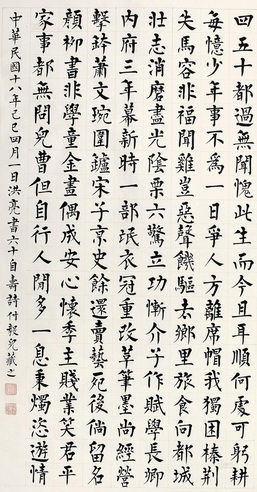 四五十都過無聞愧此生而今且耳順何處可躬耕
每憶少年事不為一日爭人方離席帽我獨困榛荆
失馬容非福聞雞豈惡聲饑驅去鄉里旅食向都城
壯志消磨盡光陰栗六驚立功慚介子作賦學長卿
內府三年幕新時一部氓衣冠重改革筆墨尚經營
擊鉢蕭文琬圍鑪宋子京史餘還賣藝苑後倘留名
顏柳書非學童金畫偶成安心懷季主賤業笑君平
家事都無問兒曹但自行人間多一息秉燭恣遊情
中華民國十八年己巳四月一日洪亮書六十自壽詩付毅兒藏之